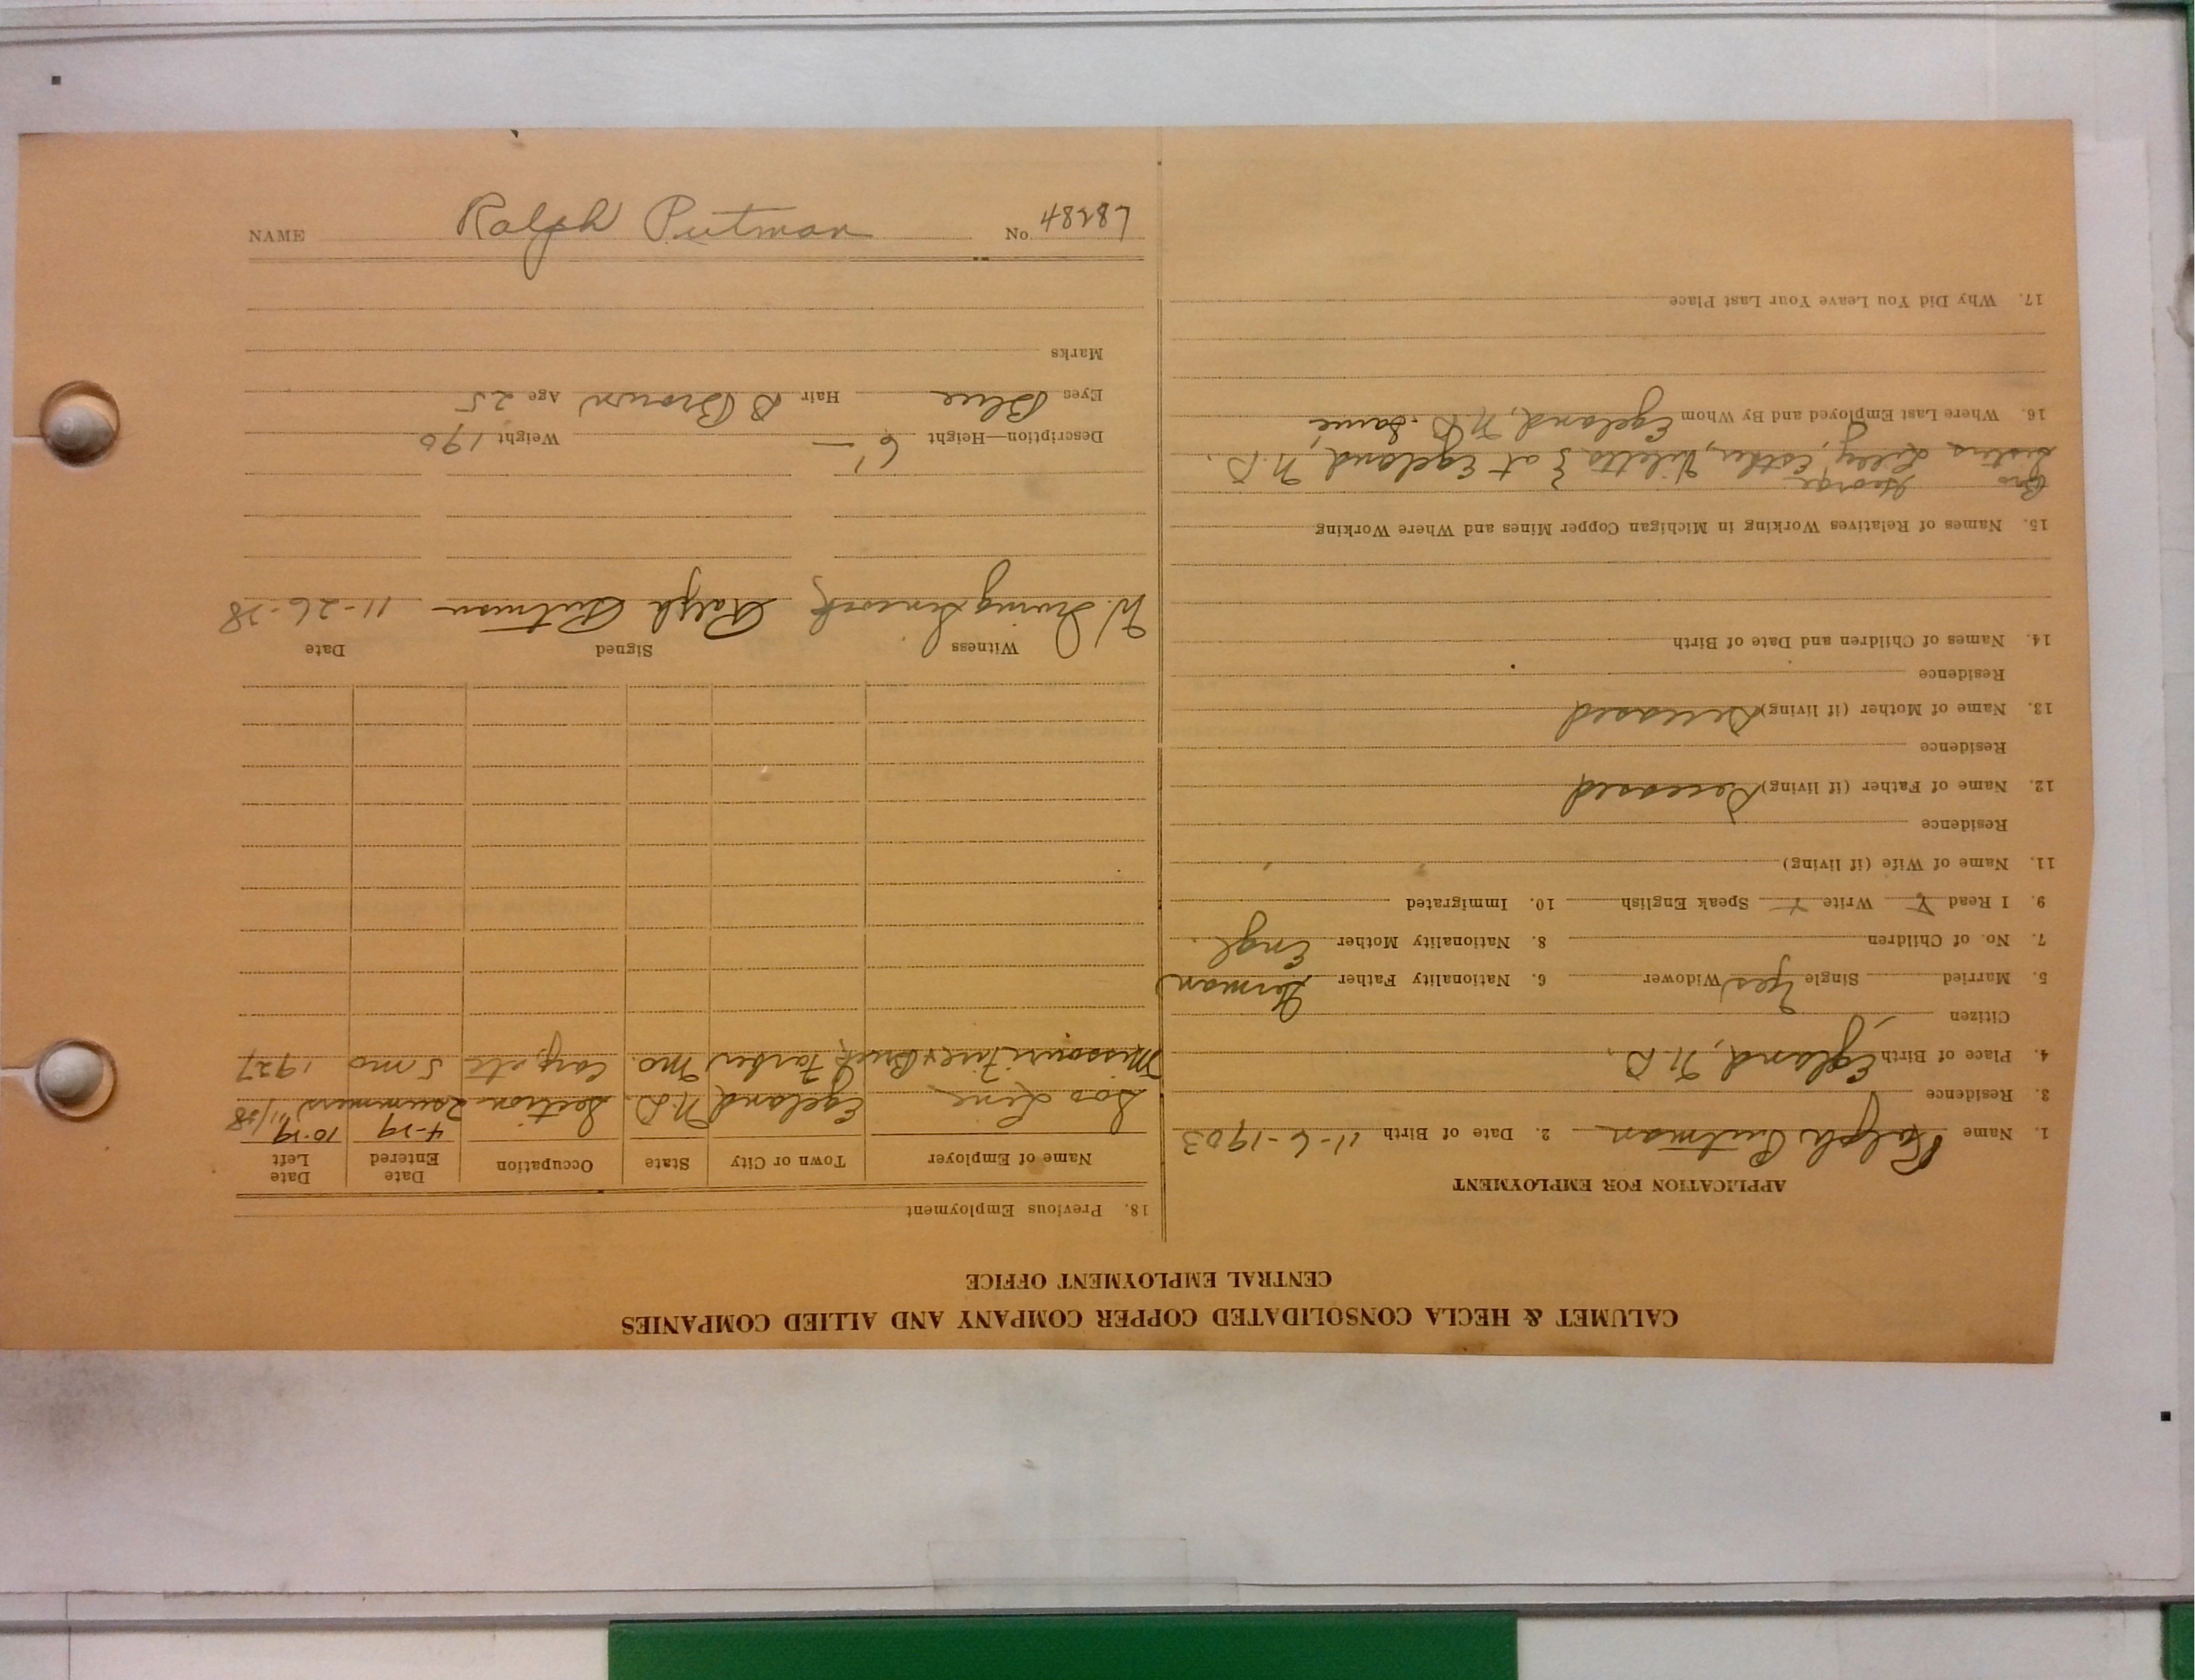 CALUMET & HECLA CONSOLIDATED COPPER COMPANY AND ALLIED COMPANIES
CENTRAL EMPLOYMENT OFFICE
APPLICATION FOR EMPLOYMENT
1. Name Ralph Putman 2. Date of Birth 11-6-1903
3. Residence
4. Place of Birth Egeland, N.D.
Citizen
5. Married Single Yes Widower 6. Nationality Father German
7. No. of Children 8. Nationality Mother Engl.
9. I Read Write Speak English 10. Immigrated
11. Name of Wife (if living)
Residence
12. Name of Father (if living) Deceased
Residence
13. Name of Mother (if living) Deceased
Residence
14. Names of Children and Date of Birth
15. Names of Relatives Working in Michigan Copper Mines and Where Working
Bro George
Sisters Lilly, Esther, Viletta } at Egeland, N.D.
16. Where Last Employed and By Whom Egeland, N.D. Same
17. Why Did You Leave Your Last Place
18. Previous Employment
Name of Employer Town or City State Occupation Date Entered Date Left
4-29 10-29
Soo Line Egeland N.D. Section 2 summers
Missouri Fire Brick Farber Mo. 5 mo 1927
Witness Signed Date
W. Irving Ralph Putman 11-26-28
Description—Height 6' — Weight 190
Eyes Blue Hair D Brown Age 25
Marks
NAME Ralph Putman No 48287